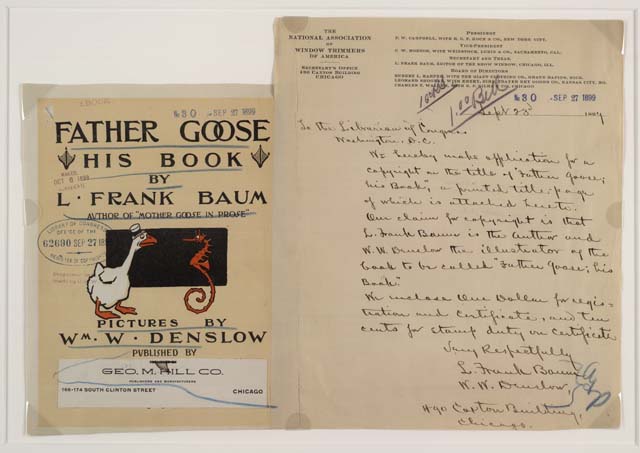 No 30 - SEP 27 1899
FATHER GOOSE
HIS BOOK
BY
L. FRANK BAUM
AUTHOR OF "MOTHER GOOSE IN PROSE"
OCT 1899
LIBRARY OF CONGRESS
OFFICE OF THE
62690 SEP 27 1899
REGISTER OF COPYRIGHTS
PICTURES BY
WM. W. DENSLOW
PUBLISHED BY
GEO. M. HILL CO.
PUBLISHERS AND MANUFACTURERS
166-174 SOUTH CLINTON STREET CHICAGO
THE
NATIONAL ASSOCIATION
OF
WINDOW TRIMMERS
OF AMERICA
SECRETARY'S OFFICE
CAXTON BUILDING
CHICAGO
PRESIDENT
VICE-PRESIDENT
SECRETARY AND TREAS.
L. FRANK BAUM, EDITOR OF THE SHOW WINDOW, CHICAGO, ILL.
BOARD OF DIRECTORS
1.00 Bill
No 30 - SEP 27 1899
Sept 23d 1899
To the Librarian of Congress
Washington, D.C.
We hereby make application for a
copyright on the title of "Father Goose;
his Book," a printed title-page
of which is attached hereto.
Our claim for copyright is that
L. Frank Baum is the author and
W. W. Denslow the illustrator of the
book to be called "Father Goose; his
Book."
We enclose One Dollar for regis-
tration and Certificate, and ten
cents for stamp duty on Certificate
Very Respectfully
L. Frank Baum
W. W. Denslow,
Caxton Building,
Chicago.